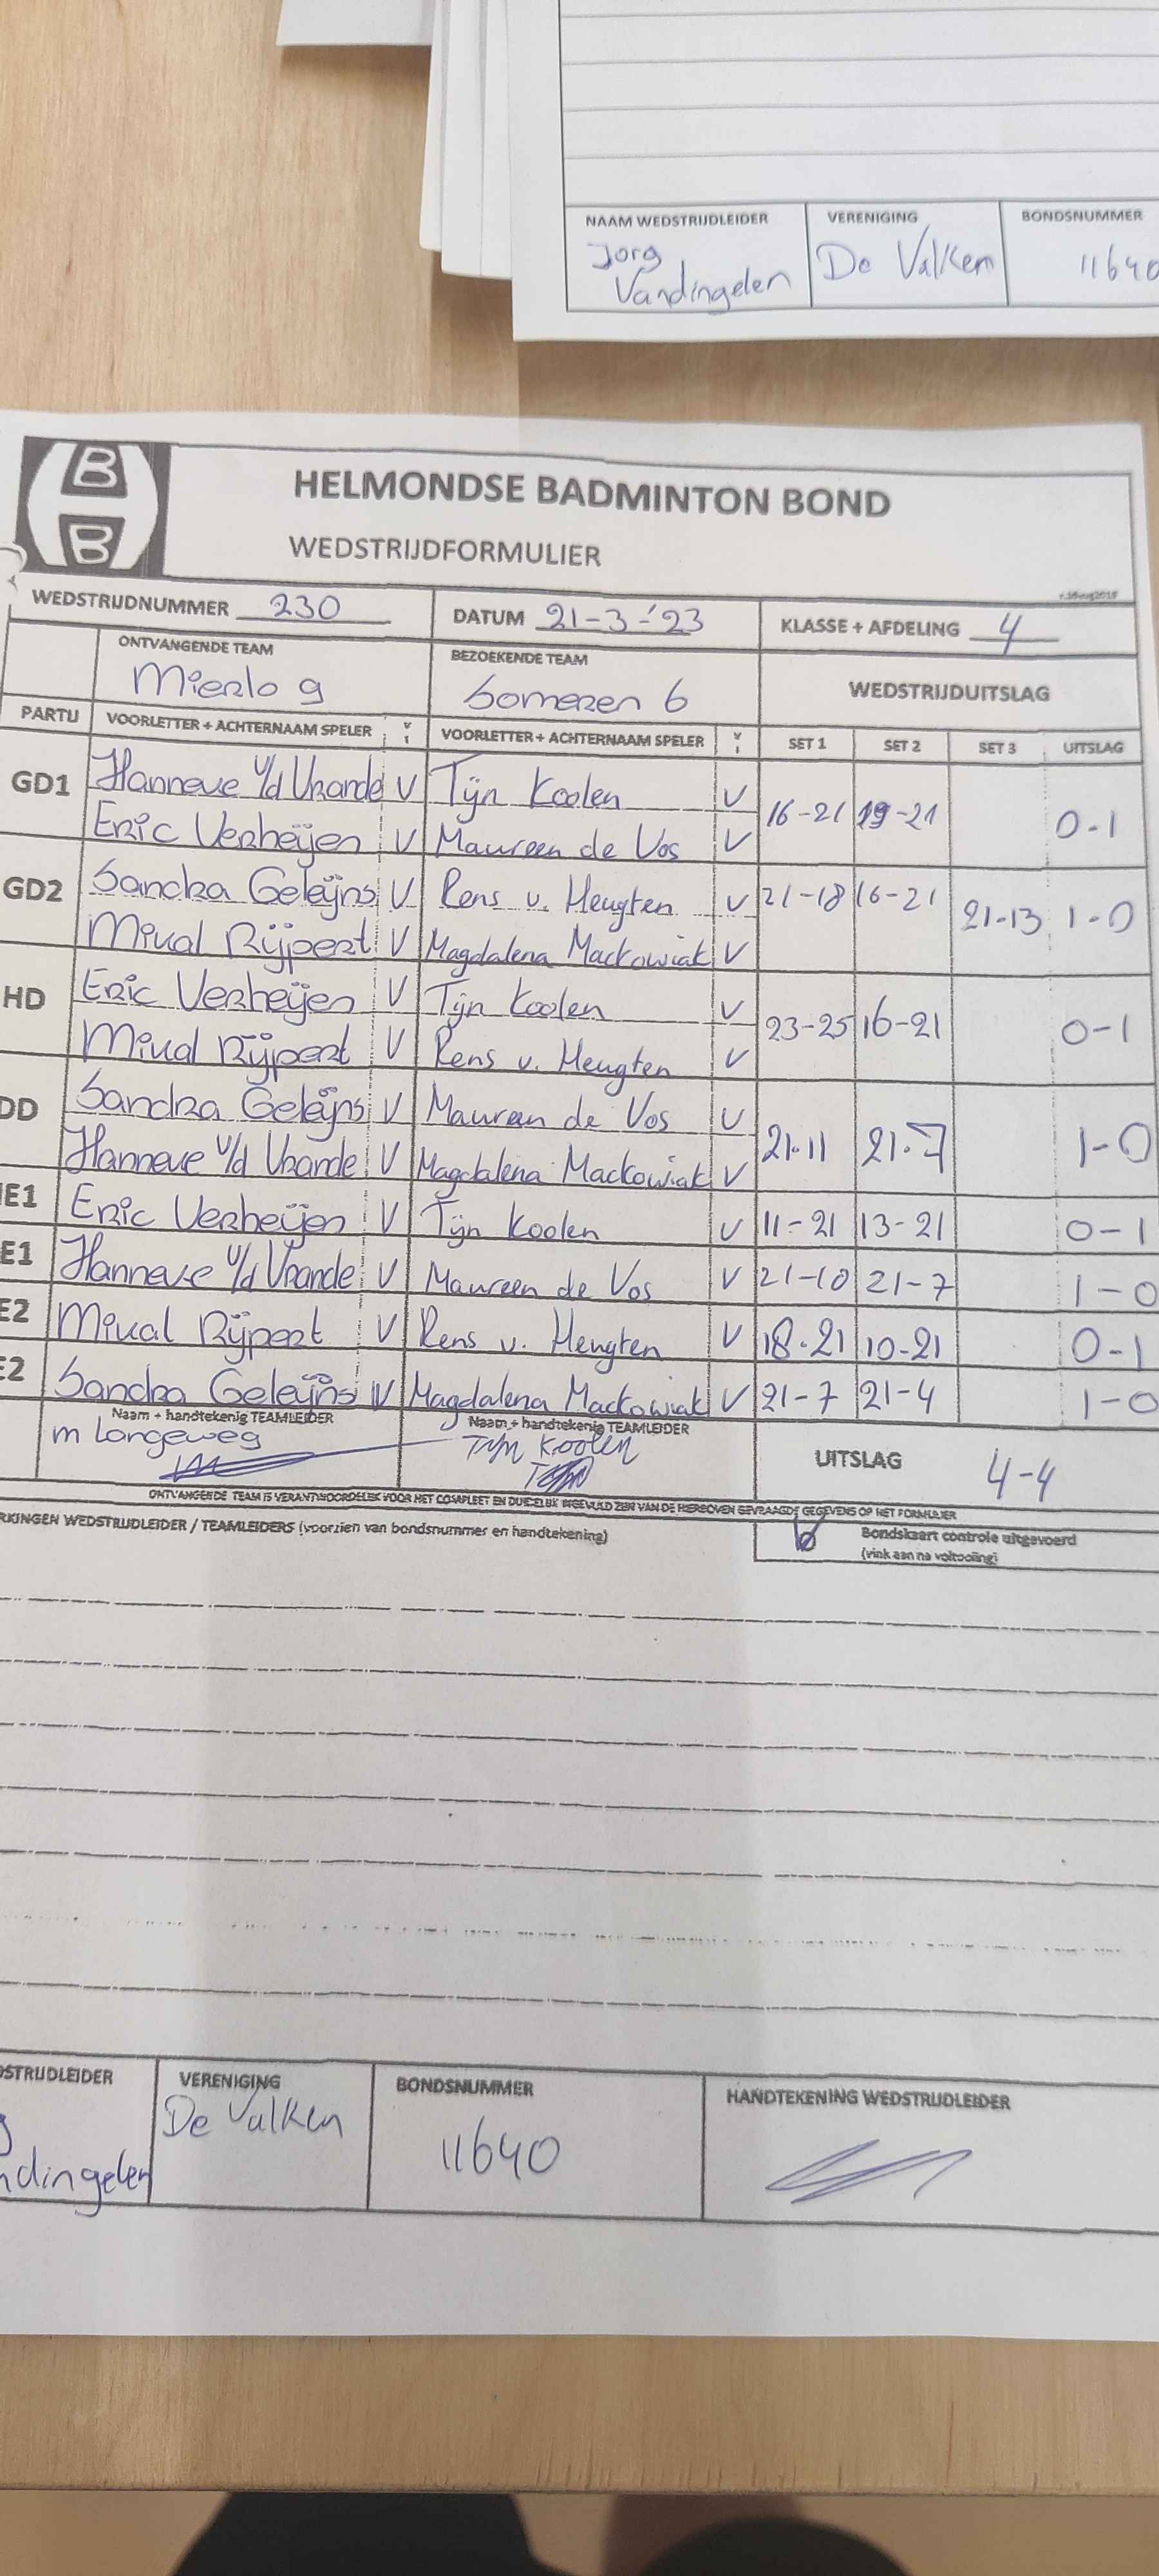 NAAM WEDSTRIJDLEIDER VERENIGING BONDSNUMMER
Jorg Vandingelen De Valken 11640
HELMONDSE BADMINTON BOND
WEDSTRIJDFORMULIER
WEDSTRIJDNUMMER 230 DATUM 21-3-'23 KLASSE + AFDELING 4
ONTVANGENDE TEAM BEZOEKENDE TEAM WEDSTRIJDUITSLAG
Mierlo 9 Someren 6
PARTIJ VOORLETTER + ACHTERNAAM SPELER VOORLETTER + ACHTERNAAM SPELER SET 1 SET 2 SET 3 UITSLAG
GD1 Hanneve v/d Vrande V Tijn Koolen V 16-21 19-21 0-1
Eric Verheijen V Maureen de Vos V
GD2 Sandra Geleijns V Rens v. Heugten V 21-18 16-21 21-13 1-0
Rijpert V Magdalena Mackowiak V
HD Eric Verheijen V Tijn Koolen V 23-25 16-21 0-1
Rijpert V Rens v. Heugten V
DD Sandra Geleijns V Maureen de Vos V 21-11 21-7 1-0
Hanneve v/d Vrande V Magdalena Mackowiak V
E1 Eric Verheijen V Tijn Koolen V 11-21 13-21 0-1
E1 Hanneve v/d Vrande V Maureen de Vos V 21-10 21-7 1-0
E2 Rijpert V Rens v. Heugten V 18-21 10-21 0-1
E2 Sandra Geleijns V Magdalena Mackowiak V 21-7 21-4 1-0
Naam + handtekenig TEAMLEIDER Naam + handtekenig TEAMLEIDER
m Langeweg Tijn Koolen UITSLAG 4-4
ONTVANGENDE TEAM IS VERANTWOORDELIJK VOOR HET COMPLEET EN DUIDELIJK INGEVULD ZIJN VAN DE HIERBOVEN GEVRAAGDE GEGEVENS OP HET FORMULIER
RKINGEN WEDSTRIJDLEIDER / TEAMLEIDERS (voorzien van bondsnummer en handtekening) Bondskaart controle uitgevoerd
(vink aan na voltooiing)
DSTRIJDLEIDER VERENIGING BONDSNUMMER HANDTEKENING WEDSTRIJDLEIDER
De Valken
11640
ndingelen